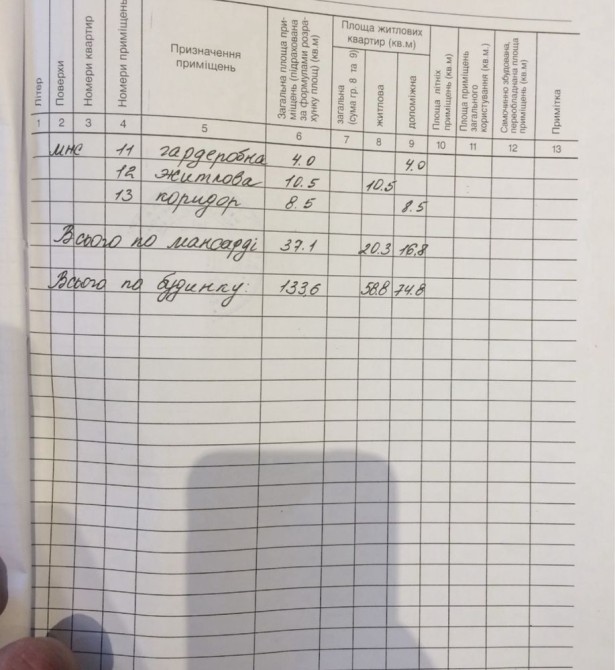 Літер
Поверхи
Номери квартир
Номери приміщень
Призначення
приміщень
Загальна площа при-
міщень (підрахована
за формулами розра-
хунку площ) (кв.м)
Площа житлових
квартир (кв.м)
загальна
(сума гр. 8 та 9)
житлова
допоміжна
Площа літніх
приміщень (кв.м)
Площа приміщень
загального
користування (кв.м.)
Самочинно збудована,
переобладнана площа
приміщень (кв.м)
Примітка
1 2 3 4 5 6 7 8 9 10 11 12 13
мнс 11 гардеробна 4.0 4.0
12 житлова 10.5 10.5
13 коридор 8.5 8.5
Всього по мансарді 37.1 20.3 16.8
Всього по будинку: 133,6 58.8 74.8